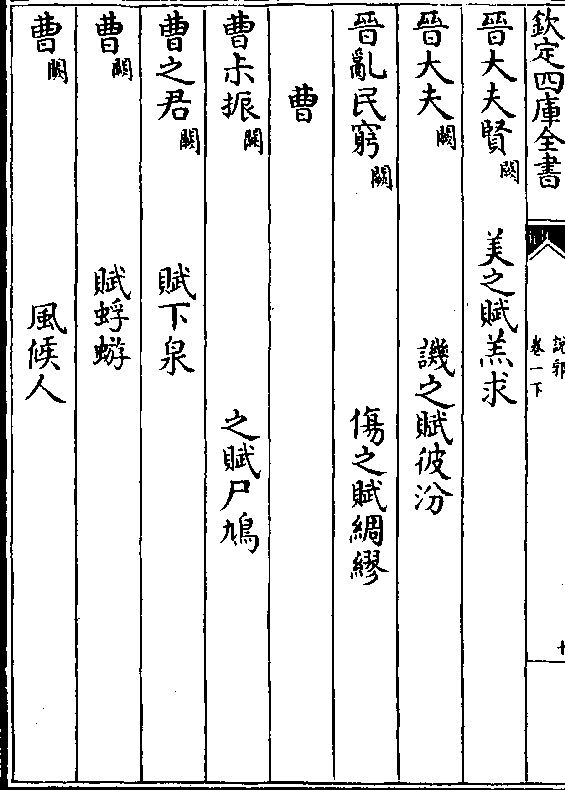 欽定四庫全書
說郛
卷一下
十
晉大夫賢闕 美之賦羔求
晉大夫闕 譏之賦彼汾
晉亂民窮闕 傷之賦綢繆
曹
曹尗振闕 之賦尸鳩
曹之君闕 賦下泉
曹闕 賦蜉蝣
曹闕 風候人